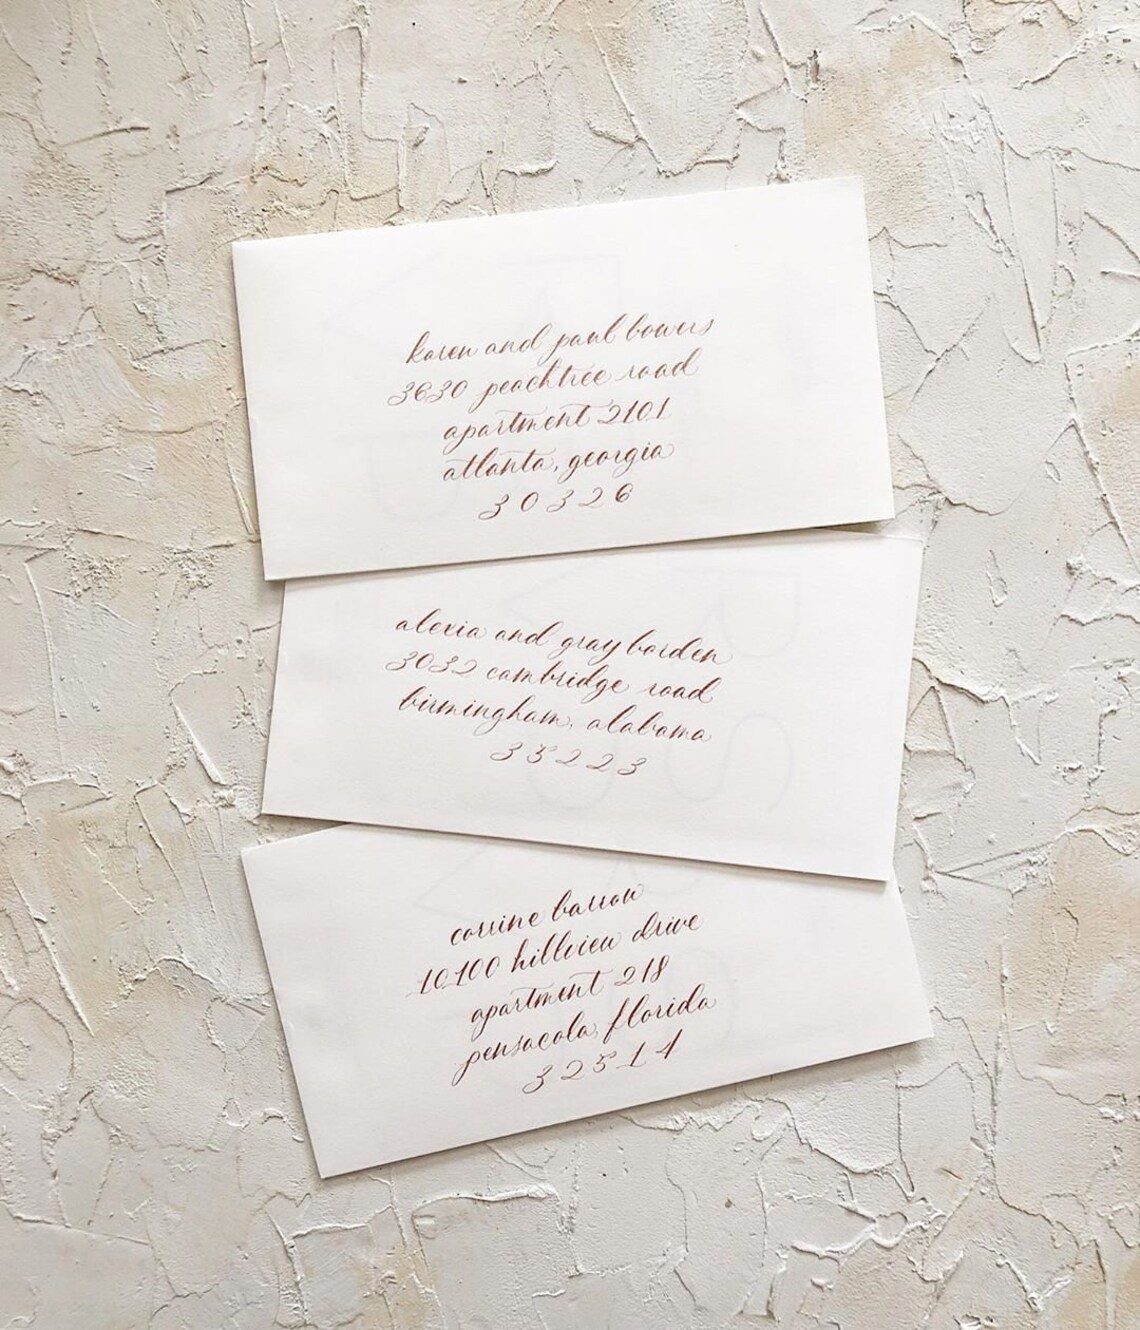 karen and paul bowers
3630 peachtree road
apartment 2101
atlanta, georgia
30326
alexia and gray borden
3032 cambridge road
birmingham, alabama
35223
corrine barrow
10100 hillview drive
apartment 218
pensacola, florida
32514